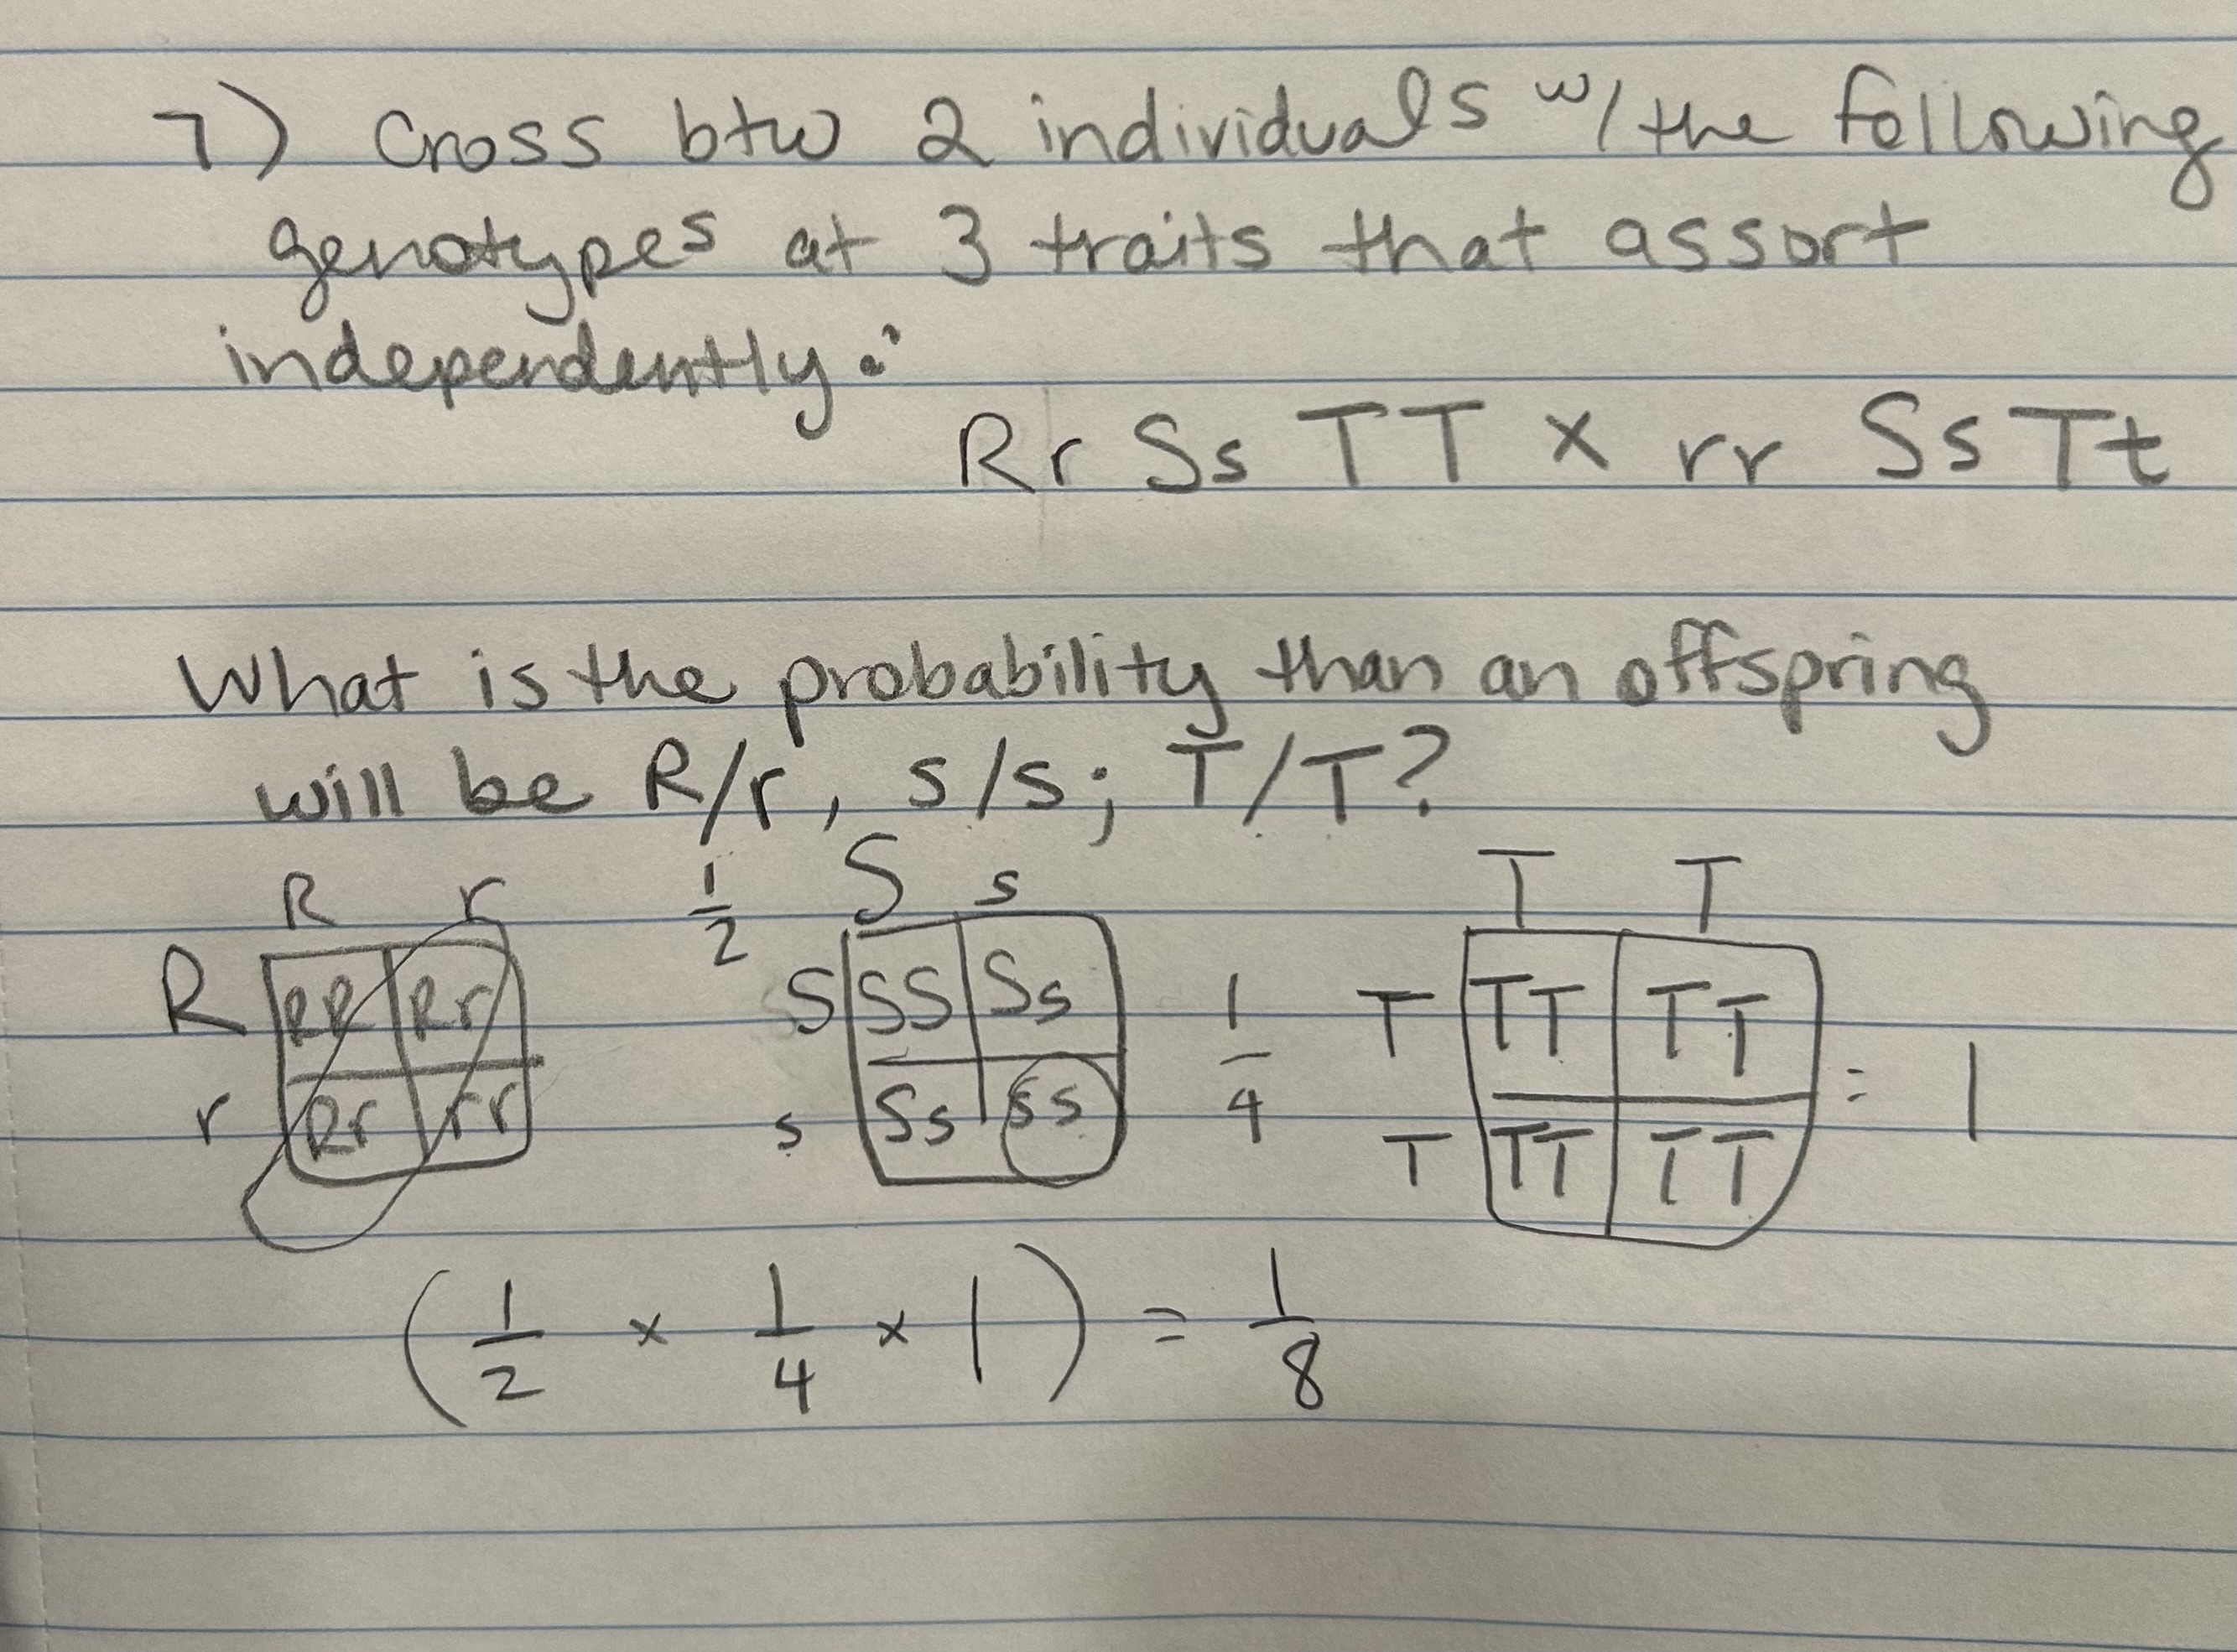 7) Cross btw 2 individuals w/ the following
genotypes at 3 traits that assort
independently:
Rr Ss TT x rr Ss Tt
What is the probability than an offspring
will be R/r, s/s; T/T?
R r 1/2 S s T T
R RR Rr S SS Ss 1/4 T TT TT = 1
r Rr rr s Ss ss T TT TT
(1/2 x 1/4 x 1) = 1/8